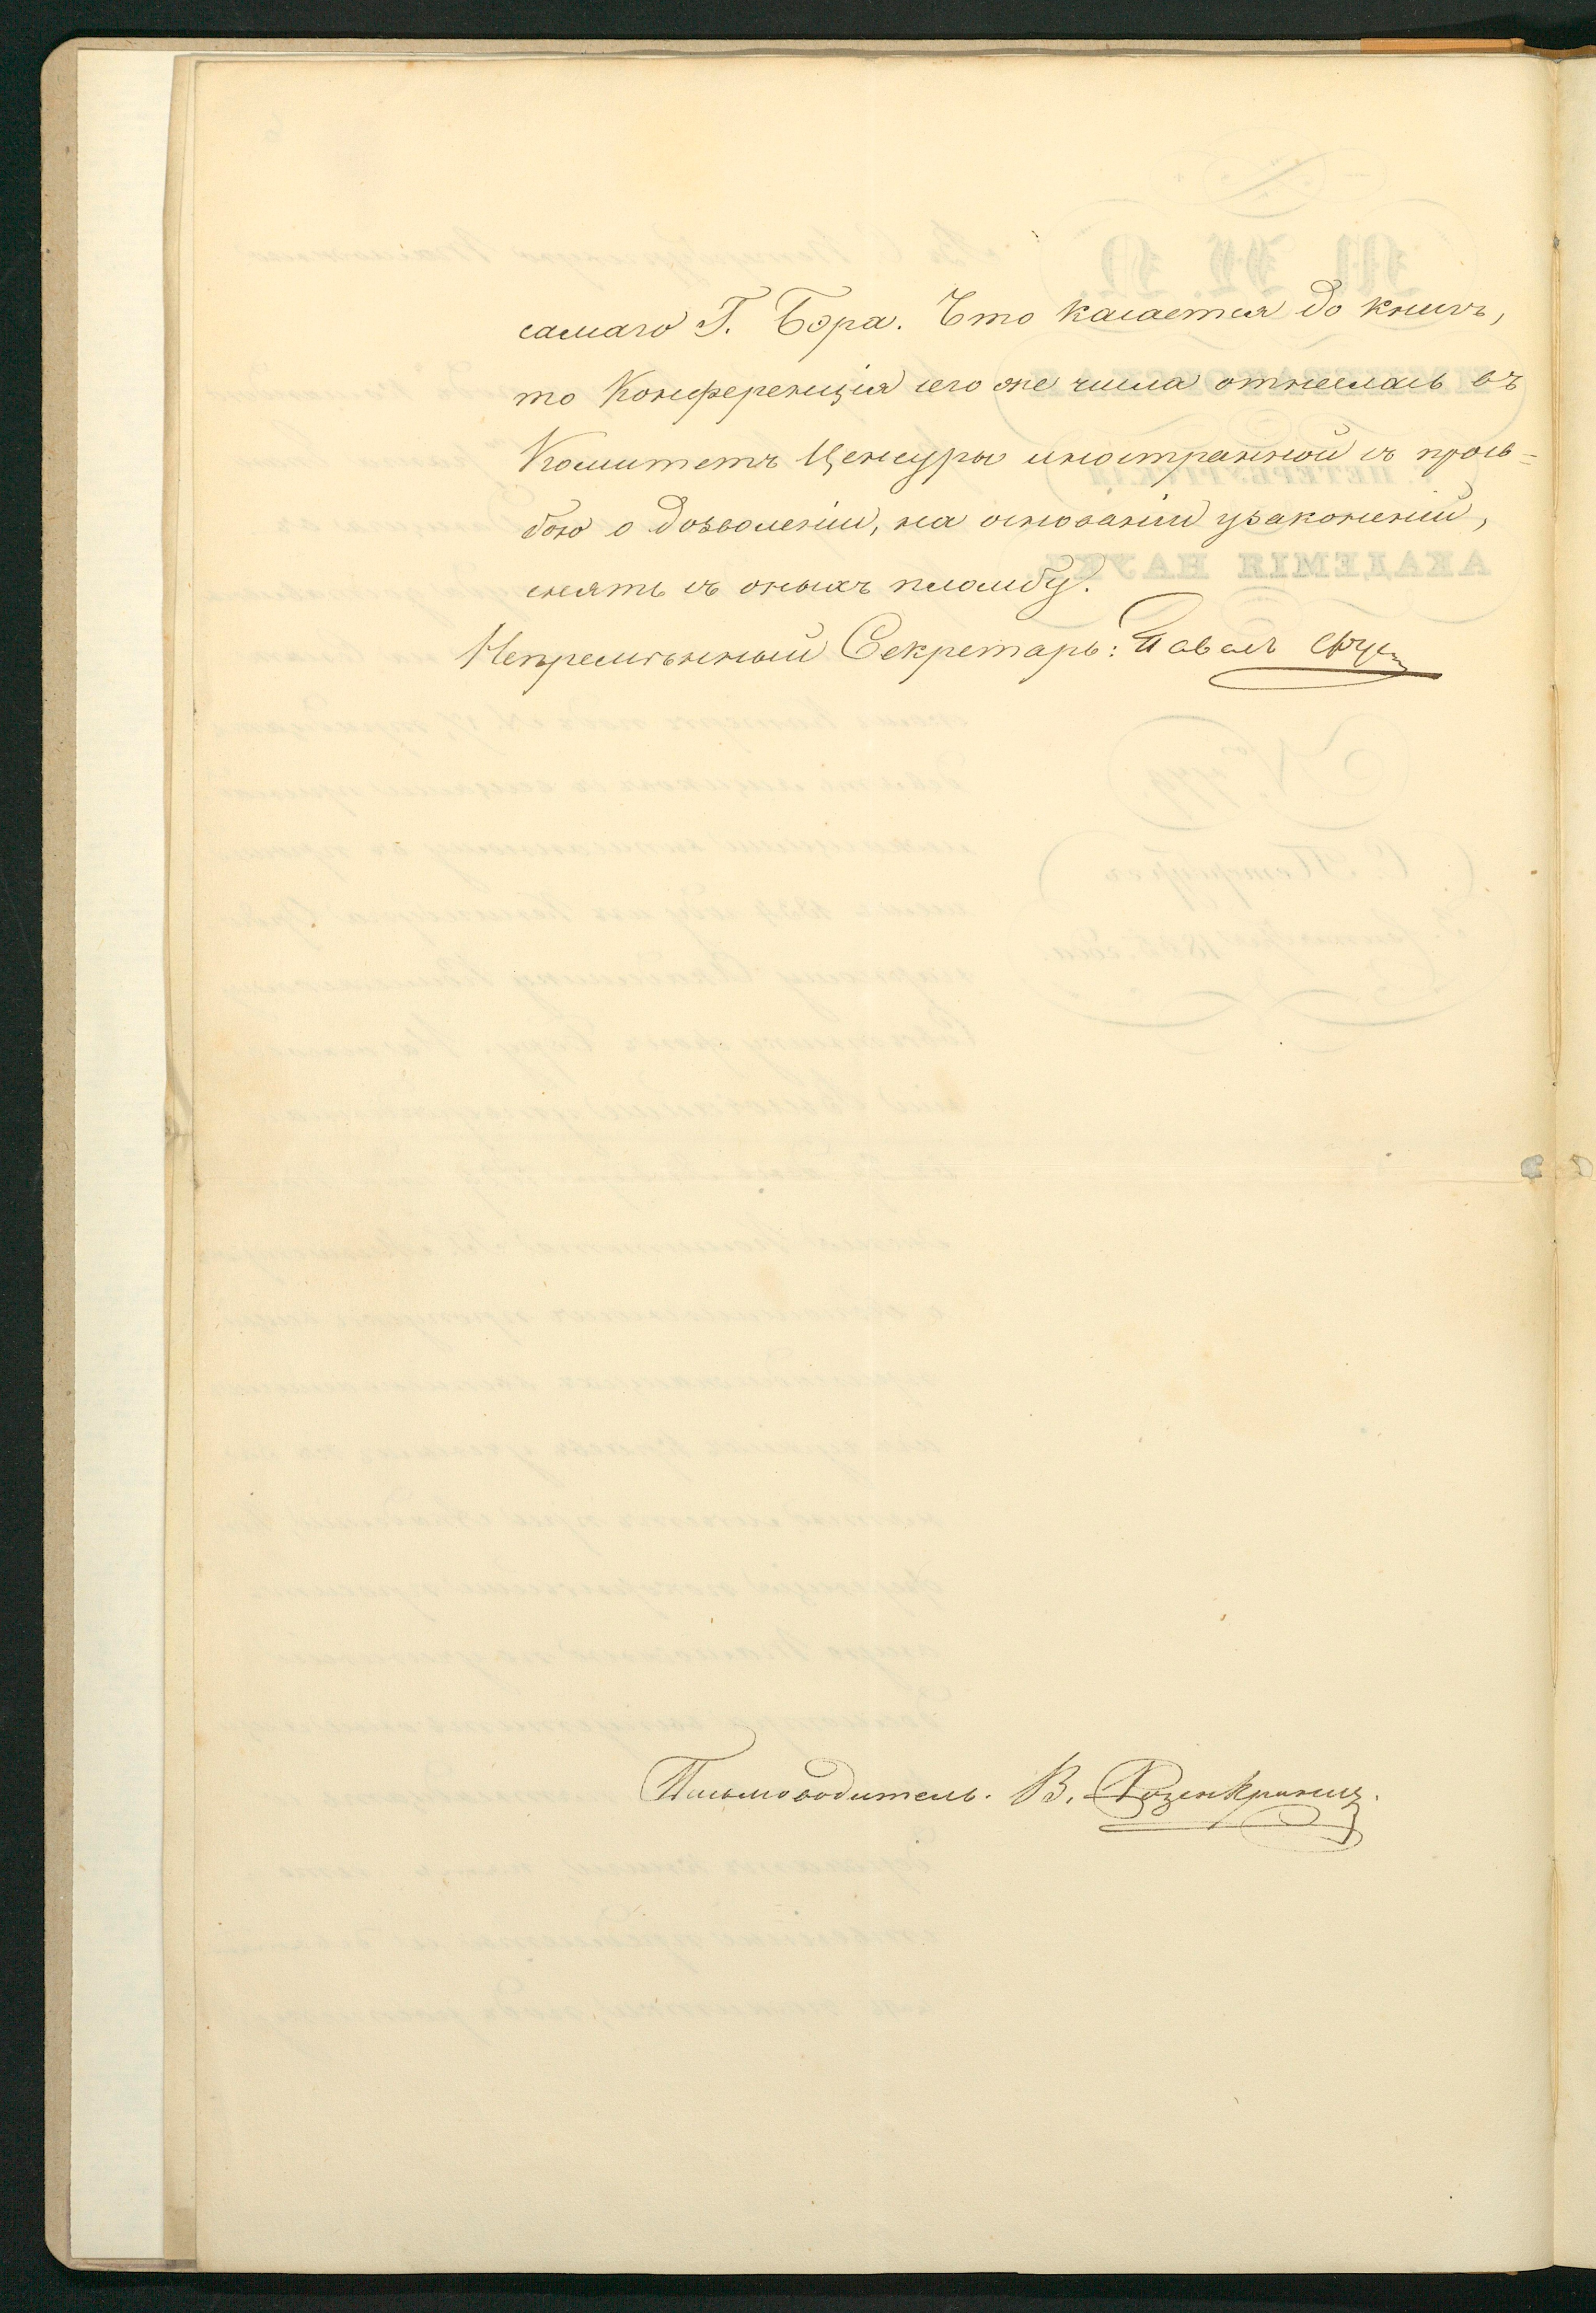 самаго Г. Бэра. Что касается до книгъ,
то Конференція сего же числа отнеслась въ
Комитетъ Ценсуры иностранной съ прось=
бою о дозволеніи, на основаніи узаконеній,
снять съ оныхъ пломбу.
Непремѣнный Секретарь: Павелъ Фусъ
Письмоводитель. В. Розенкранцъ.